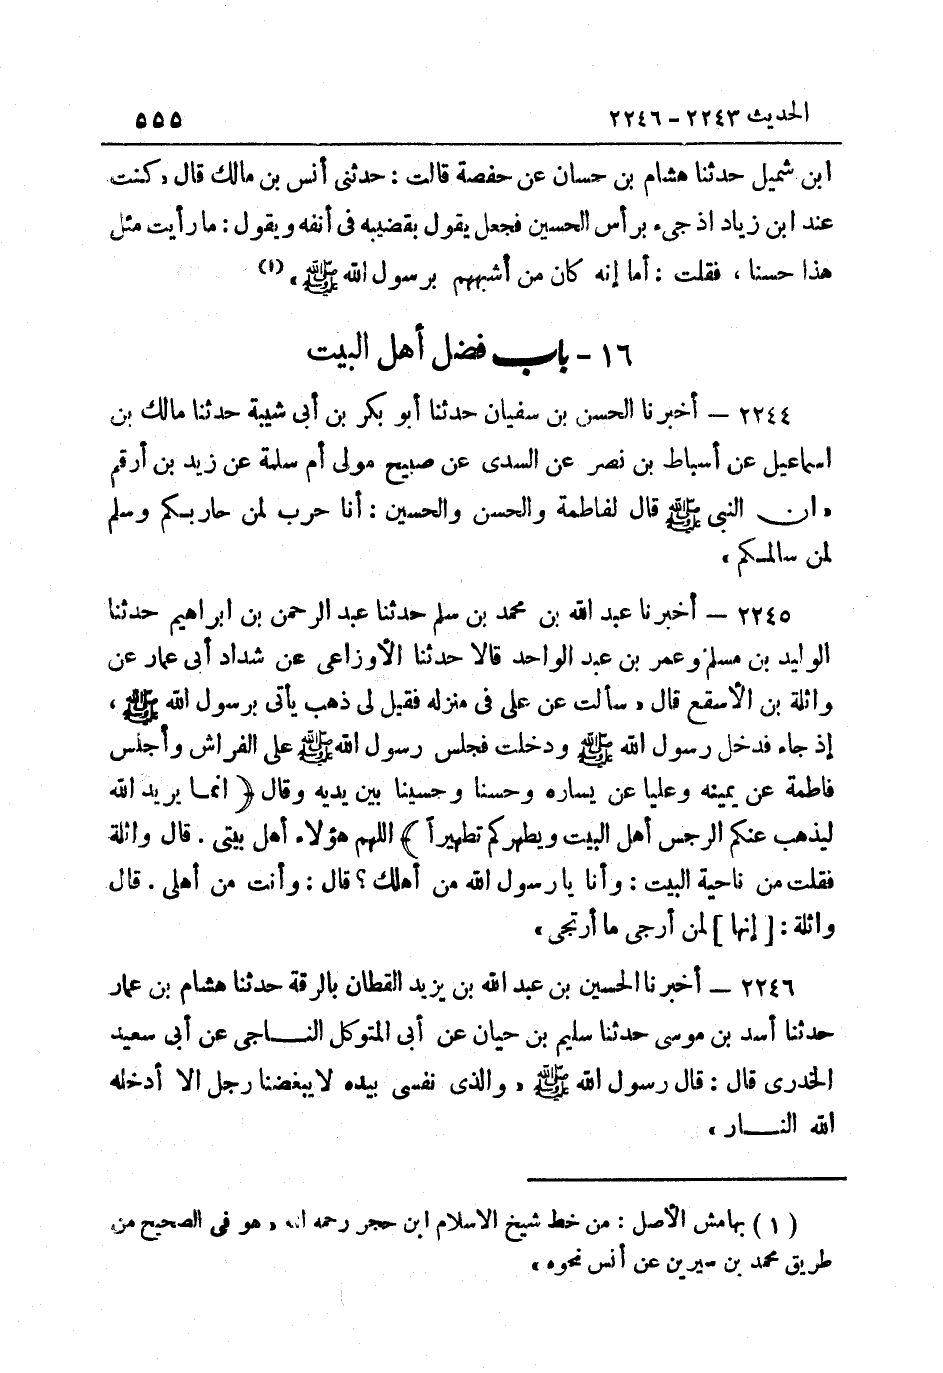 الحديث ٢٢٤٣ - ٢٢٤٦ ٥٥٥
ابن شميل حدثنا هشام بن حسان عن حفصة قالت : حدثنى أنس بن مالك قال « كنت
عند ابن زياد اذ جىء برأس الحسين فجعل يقول بقضيبه فى أنفه ويقول : ما رأيت مثل
هذا حسنا ، فقلت : أما إنه كان من أشبههم برسول الله ﷺ » (١)
١٦ - باب فضل أهل البيت
٢٢٤٤ — أخبرنا الحسن بن سفيان حدثنا أبو بكر بن أبى شيبة حدثنا مالك بن
اسماعيل عن أسباط بن نصر عن السدى عن صبيح مولى أم سلمة عن زيد بن أرقم
« ان النبى ﷺ قال لفاطمة والحسن والحسين : أنا حرب لمن حاربكم وسلم
لمن سالمكم »
٢٢٤٥ — أخبرنا عبد الله بن محمد بن سلم حدثنا عبد الرحمن بن ابراهيم حدثنا
الوليد بن مسلم وعمر بن عبد الواحد قالا حدثنا الأوزاعى عن شداد أبى عمار عن
واثلة بن الأسقع قال « سألت عن على فى منزله فقيل لى ذهب يأتى برسول الله ﷺ ،
إذ جاء فدخل رسول الله ﷺ ودخلت فجلس رسول الله ﷺ على الفراش وأجلس
فاطمة عن يمينه وعليا عن يساره وحسنا وحسينا بين يديه وقال ﴿ انما يريد الله
ليذهب عنكم الرجس أهل البيت ويطهركم تطهيراً ﴾ اللهم هؤلاء أهل بيتى . قال واثلة
فقلت من ناحية البيت : وأنا يا رسول الله من أهلك ؟ قال : وأنت من أهلى . قال
واثلة : [ إنها ] لمن أرجى ما أرتجى »
٢٢٤٦ — أخبرنا الحسين بن عبد الله بن يزيد القطان بالرقة حدثنا هشام بن عمار
حدثنا أسد بن موسى حدثنا سليم بن حيان عن أبى المتوكل الناجى عن أبى سعيد
الخدرى قال : قال رسول الله ﷺ « والذى نفسى بيده لا يبغضنا رجل الا أدخله
الله النار »
( ١ ) بهامش الأصل : من خط شيخ الاسلام ابن حجر رحمه الله « هو فى الصحيح من
طريق محمد بن سيرين عن أنس نحوه »